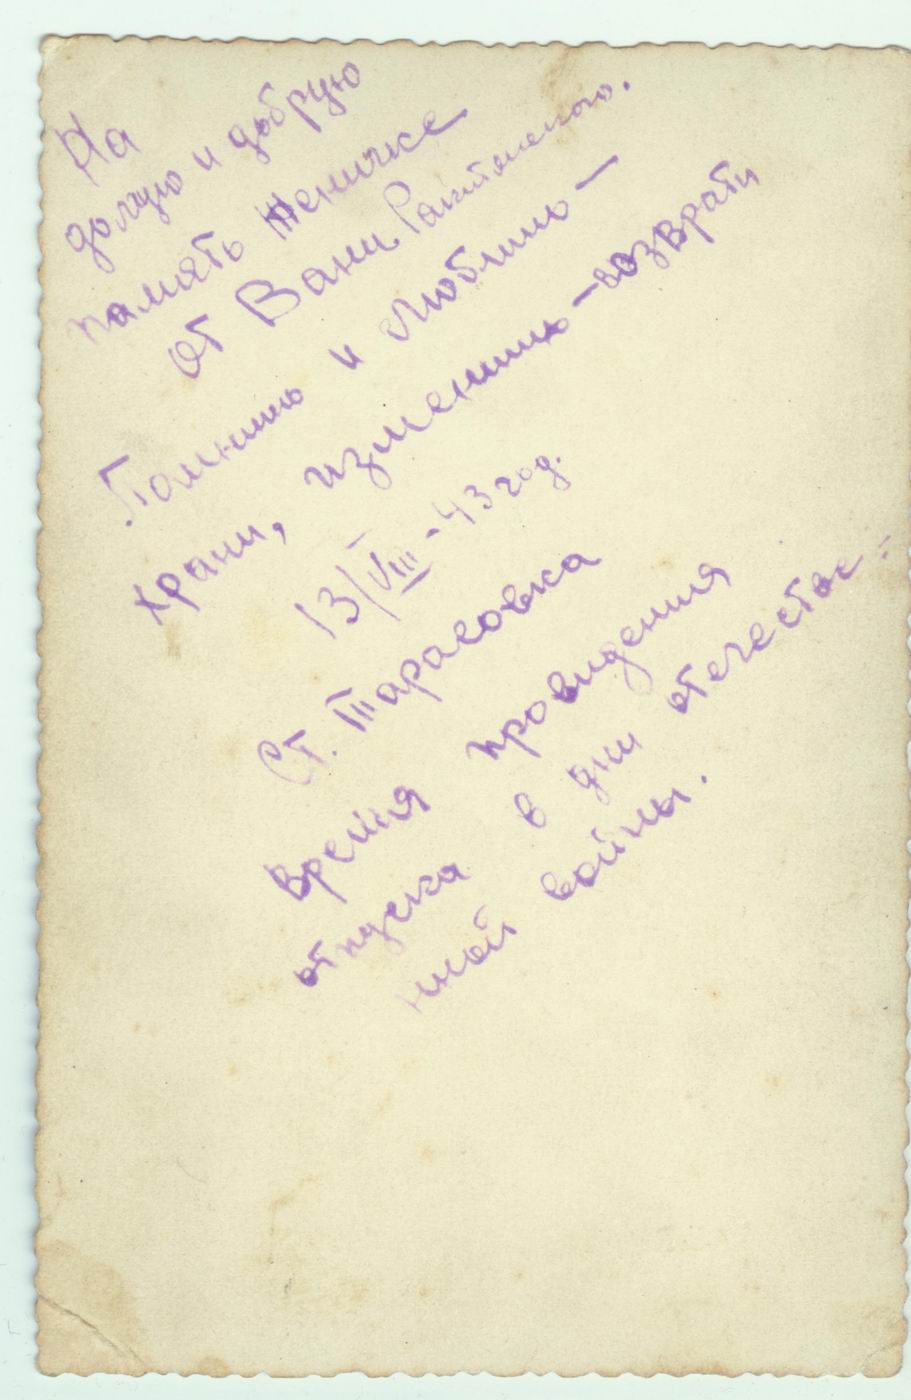 На
долгую и добрую
память Женичке
от Вани
Помнишь и любишь –
храни, изменишь – возврати
13/VIII – 43 год.
Ст. Тарасовка
Время провидения
отпуска в дни отечестве-
нной войны.